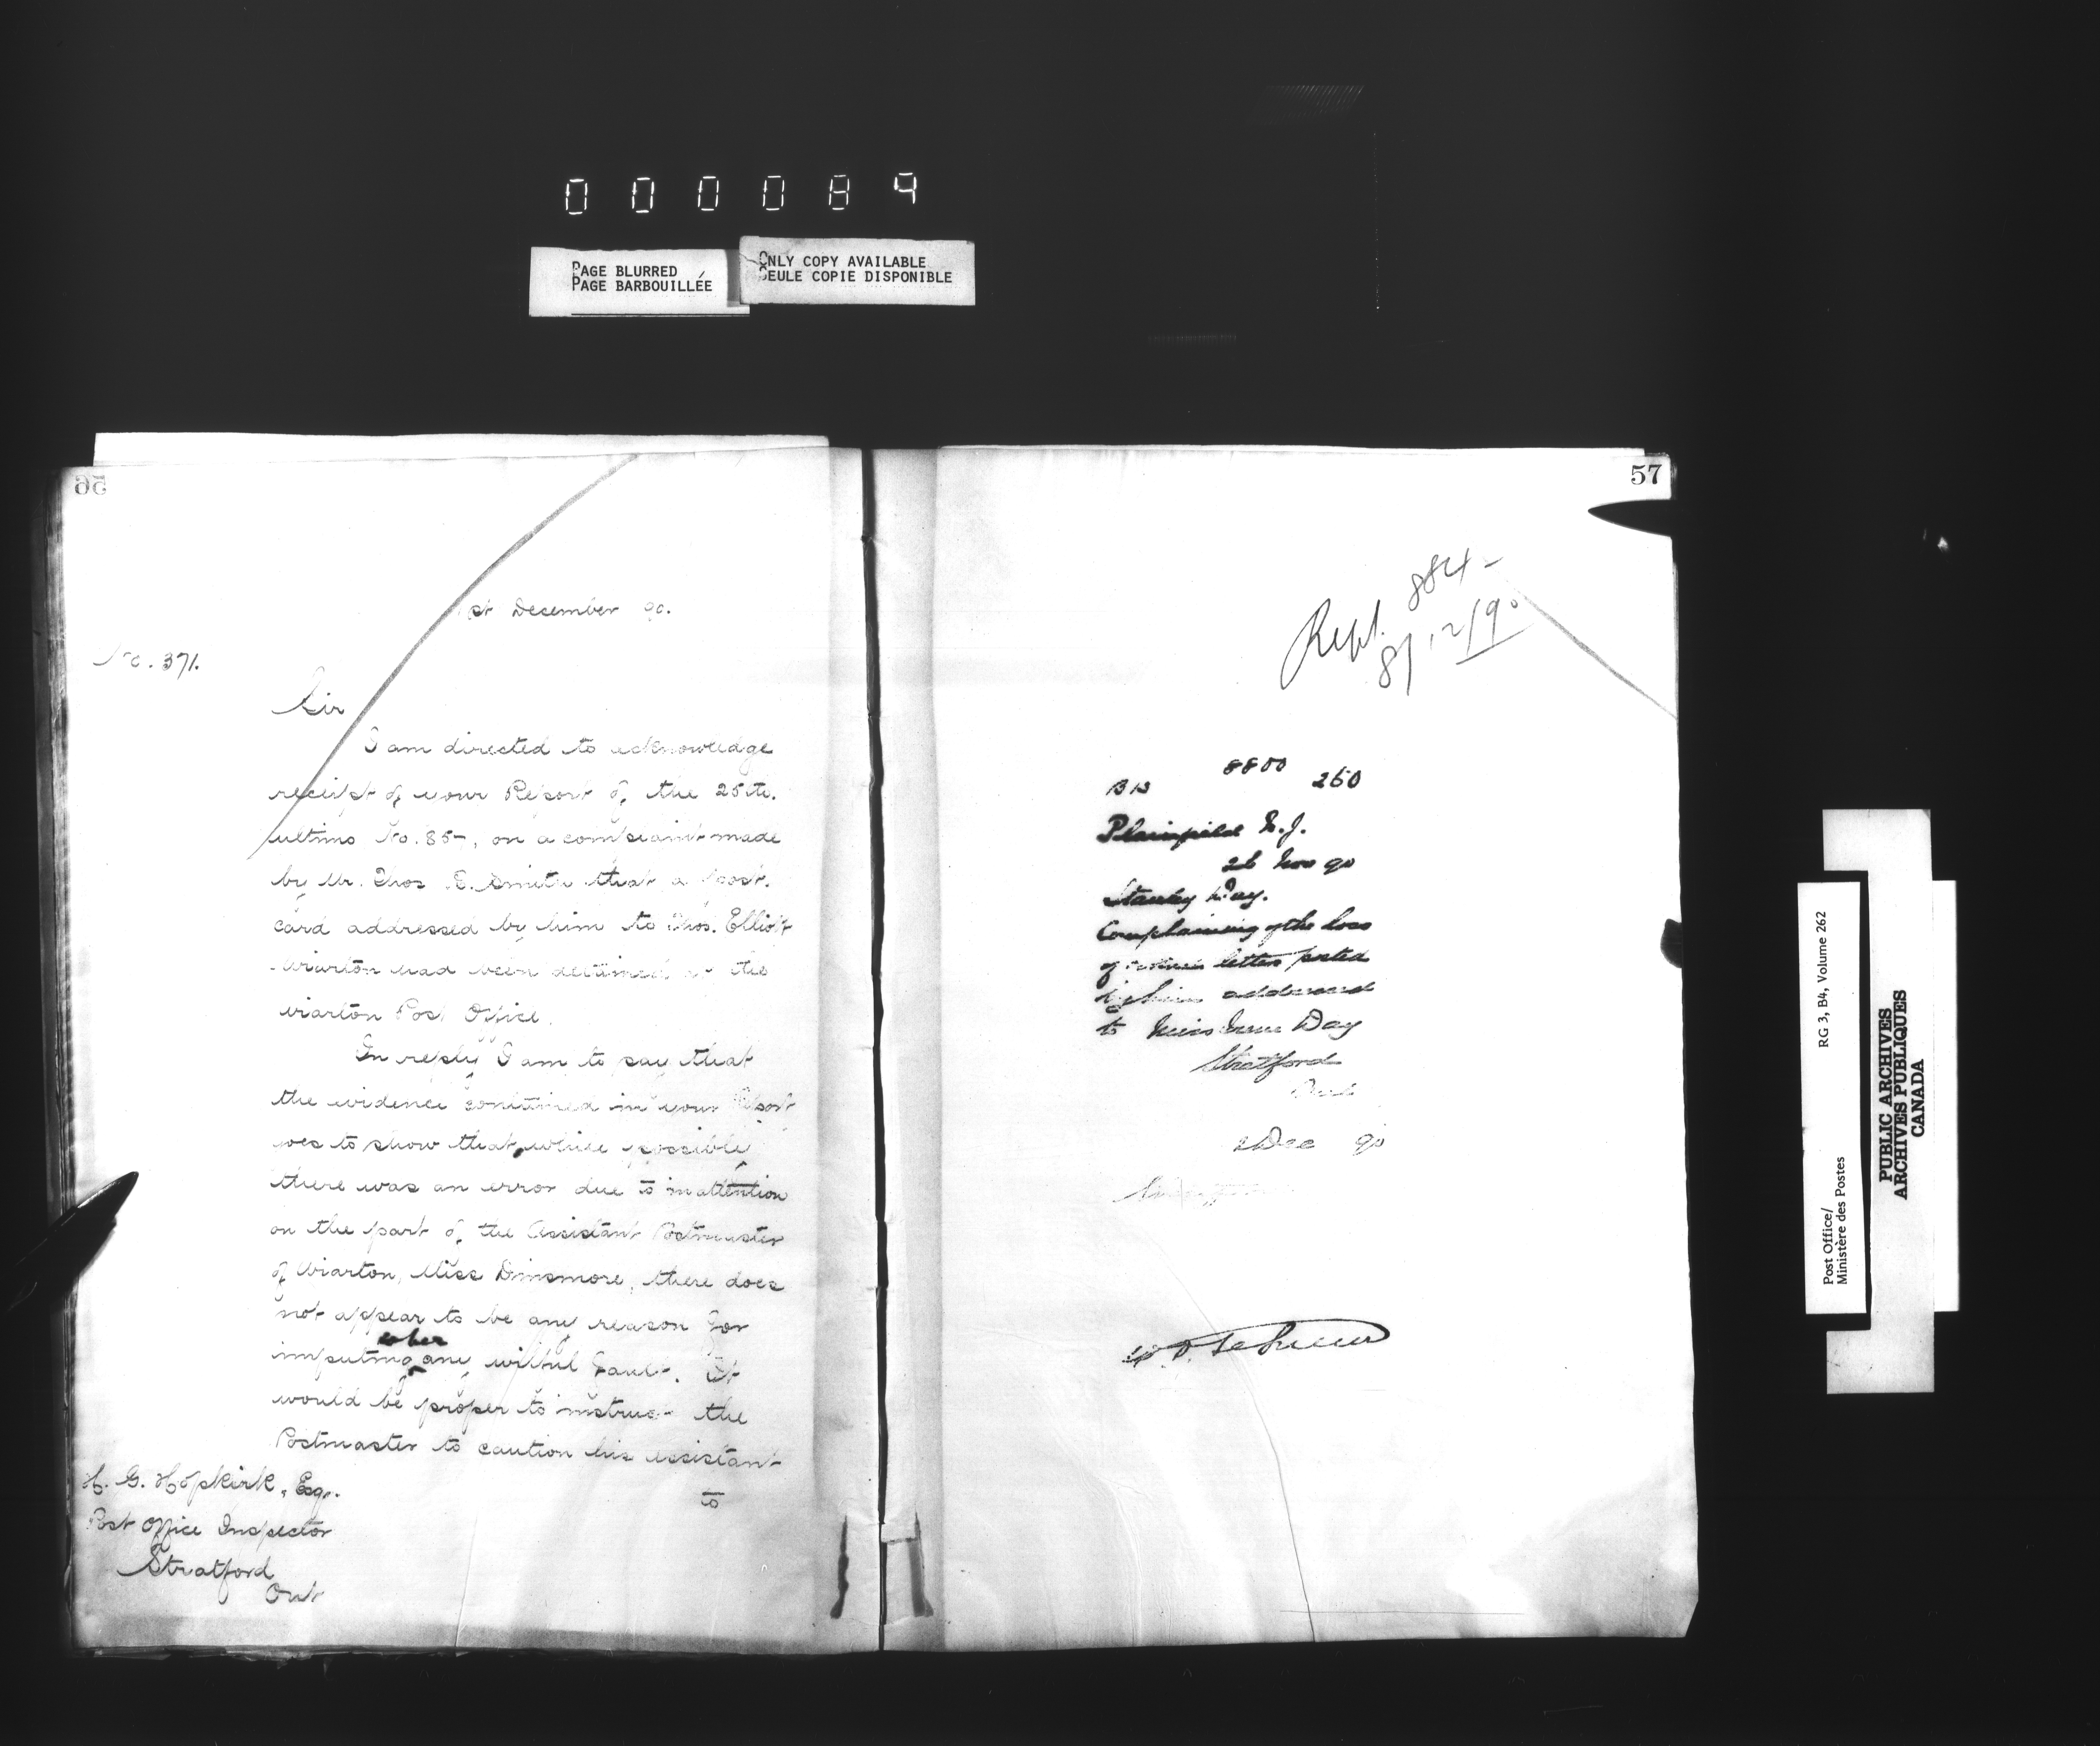 000089
PAGE BLURRED
PAGE BARBOUILLÉE
ONLY COPY AVAILABLE
SEULE COPIE DISPONIBLE
56
1st December 90.
No. 371.
Sir
I am directed to acknowledge
receipt of your Report of the 25th.
ultimo No. 85-, on a complaint made
by Mr. Thos E. Smith that a post.
card addressed by him to Thos. Elliott
Wiarton had been detained at the
Wiarton Post Office.
In reply I am to say that
the evidence contained in your Report
goes to show that, while possibly
there was an error due to inattention
on the part of the Assistant Postmaster
of Wiarton, Miss Dinsmore, there does
not appear to be any reason for
other
imputing any wilful fault. It
would be proper to instruct the
Postmaster to caution his assistant
to
H. G. Hopkirk, Esqr.
Post Office Inspector
Stratford
Ont
57
Rept. 884-
8/12/90
8800
260
Plainfield N.J.
26 Nov 90
Stanley Day.
Complaining of the loss
of letter posted
by him addressed
to Miss Day
Stratford
Ont
2 Dec 90
RG 3, B4, Volume 262
Post Office/
Ministère des Postes
PUBLIC ARCHIVES
ARCHIVES PUBLIQUES
CANADA